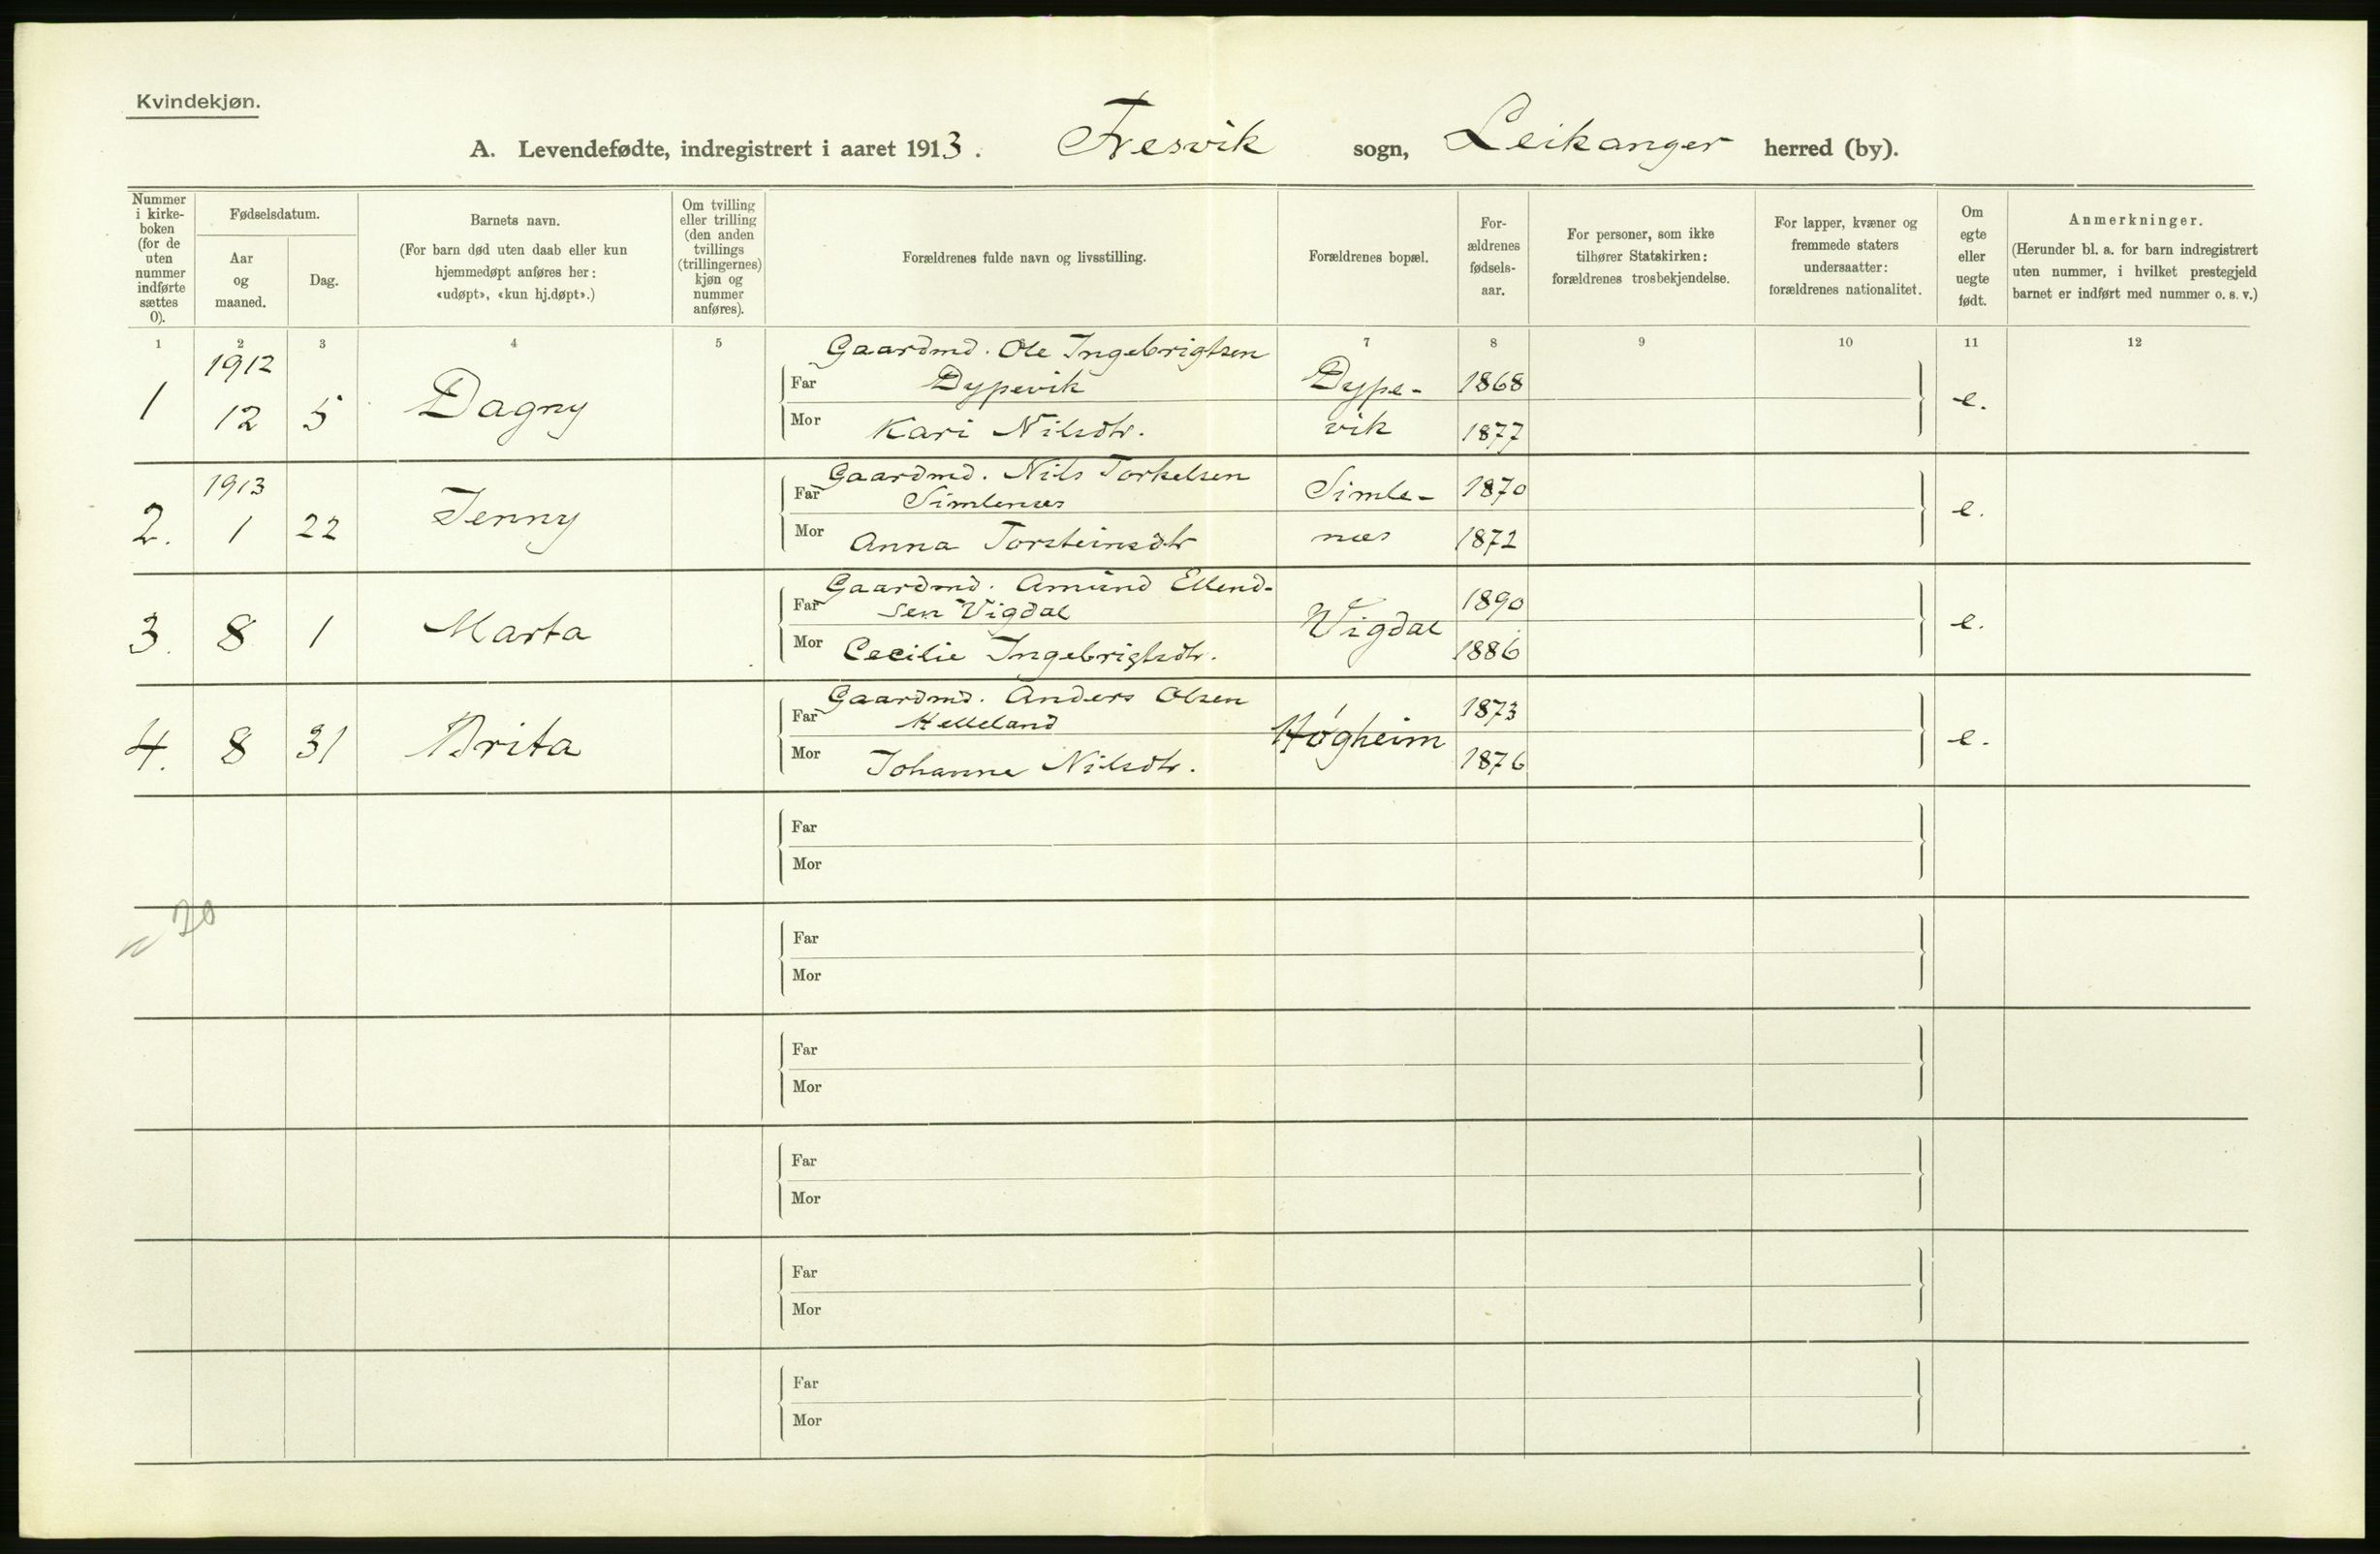 Kvindekjøn.
A. Levendefødte, indregistrert i aaret 1913. Fresvik sogn, Leikanger herred (by).
Nummer i kirke-boken (for de uten nummer indførte sættes 0).
Fødselsdatum.
Aar og maaned.
Dag.
Barnets navn.
(For barn død uten daab eller kun
hjemmedøpt anføres her:
«udøpt», «kun hj.døpt».)
Om tvilling
eller trilling
(den anden
tvillings
(trillingernes)
kjøn og
nummer
anføres).
Forældrenes fulde navn og livsstilling.
Forældrenes bopæl.
For-
ældrenes
fødsels-
aar.
For personer, som ikke
tilhører Statskirken:
forældrenes trosbekjendelse.
For lapper, kvæner og
fremmede staters
undersaatter:
forældrenes nationalitet.
Om
egte
eller
uegte
født.
Anmerkninger.
(Herunder bl. a. for barn indregistrert
uten nummer, i hvilket prestegjeld
barnet er indført med nummer o. s. v.)
1 2 3 4 5 7 8 9 10 11 12
1912
Gaardmd. Ole Ingebrigtsen
1 12 5 Dagny Far Dypevik Dype- 1868 e.
Mor Kari Nilsdtr. vik 1877
1913
Gaardmd. Nils Torkelsen
2. 1 22 Jenny Far Simlenæs Simle- 1870 e.
Mor Anna Torsteinsdtr næs 1872
Gaardmd. Amund Ellend-
3. 8 1 Marta Far sen Vigdal Vigdal 1890 e.
Mor Cecilie Ingebrigtsdtr. 1886
Gaardmd. Anders Olsen
4. 8 31 Brita Far Helleland Høgheim 1873 e.
Mor Johanne Nilsdtr. 1876
Far
Mor
20
Far
Mor
Far
Mor
Far
Mor
Far
Mor
Far
Mor